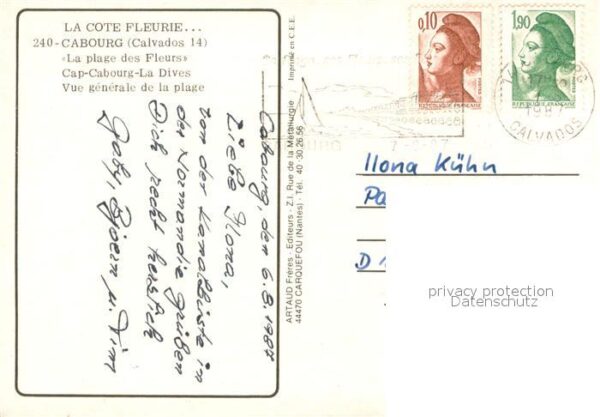 LA COTE FLEURIE...
240-CABOURG (Calvados 14)
«La plage des Fleurs»
Cap-Cabourg-La Dives
Vue générale de la plage
Cabourg, den 6.8.1987
Liebe Ilona,
von der Kanalküste in
der Normandie grüßen
Dich recht herzlich
Gabi, Bjoern u. Tim
Imprimé en C.E.E.
ARTAUD Frères - Editeurs - Z.I. Rue de la Métallurgie
44470 CARQUEFOU (Nantes) - Tél. 40 30.26.56
0,10
REPUBLIQUE FRANÇAISE
1,90
REPUBLIQUE FRANÇAISE
1987
CALVADOS
Ilona Kühn
Pa
D 1
privacy protection
Datenschutz